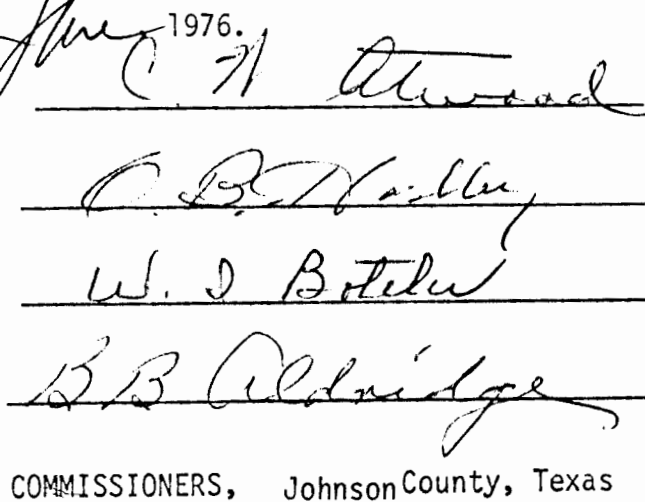 June 1976.
C. W Atwood
O. B.
W. D Boteler
B B Aldridge
COMMISSIONERS, Johnson County, Texas